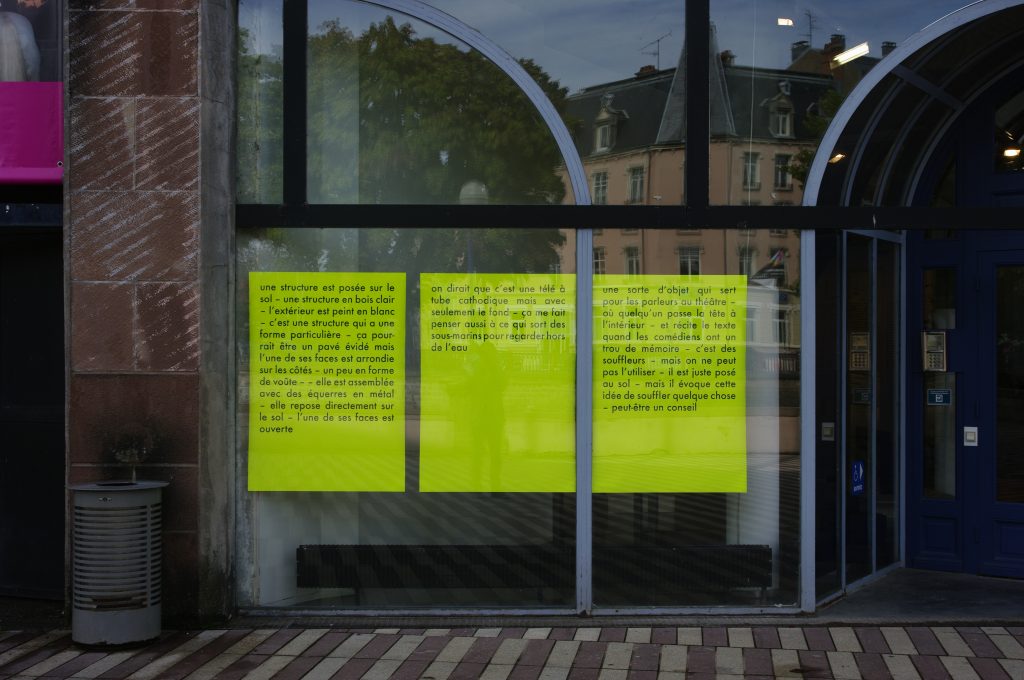 une structure est posée sur le
sol – une structure en bois clair
– l'extérieur est peint en blanc
– c'est une structure qui a une
forme particulière – ça pour-
rait être un pavé évidé mais
l'une de ses faces est arrondie
sur les côtés – un peu en forme
de voûte – – elle est assemblée
avec des équerres en métal
– elle repose directement sur
le sol – l'une de ses faces est
ouverte
on dirait que c'est une télé à
tube cathodique mais avec
seulement le fond – ça me fait
penser aussi à ce qui sort des
sous-marins pour regarder hors
de l'eau
une sorte d'objet qui sert
pour les parleurs au théâtre –
où quelqu'un passe la tête à
l'intérieur – et récite le texte
quand les comédiens ont un
trou de mémoire – c'est des
souffleurs – mais on ne peut
pas l'utiliser – il est juste posé
au sol – mais il évoque cette
idée de souffler quelque chose
– peut-être un conseil